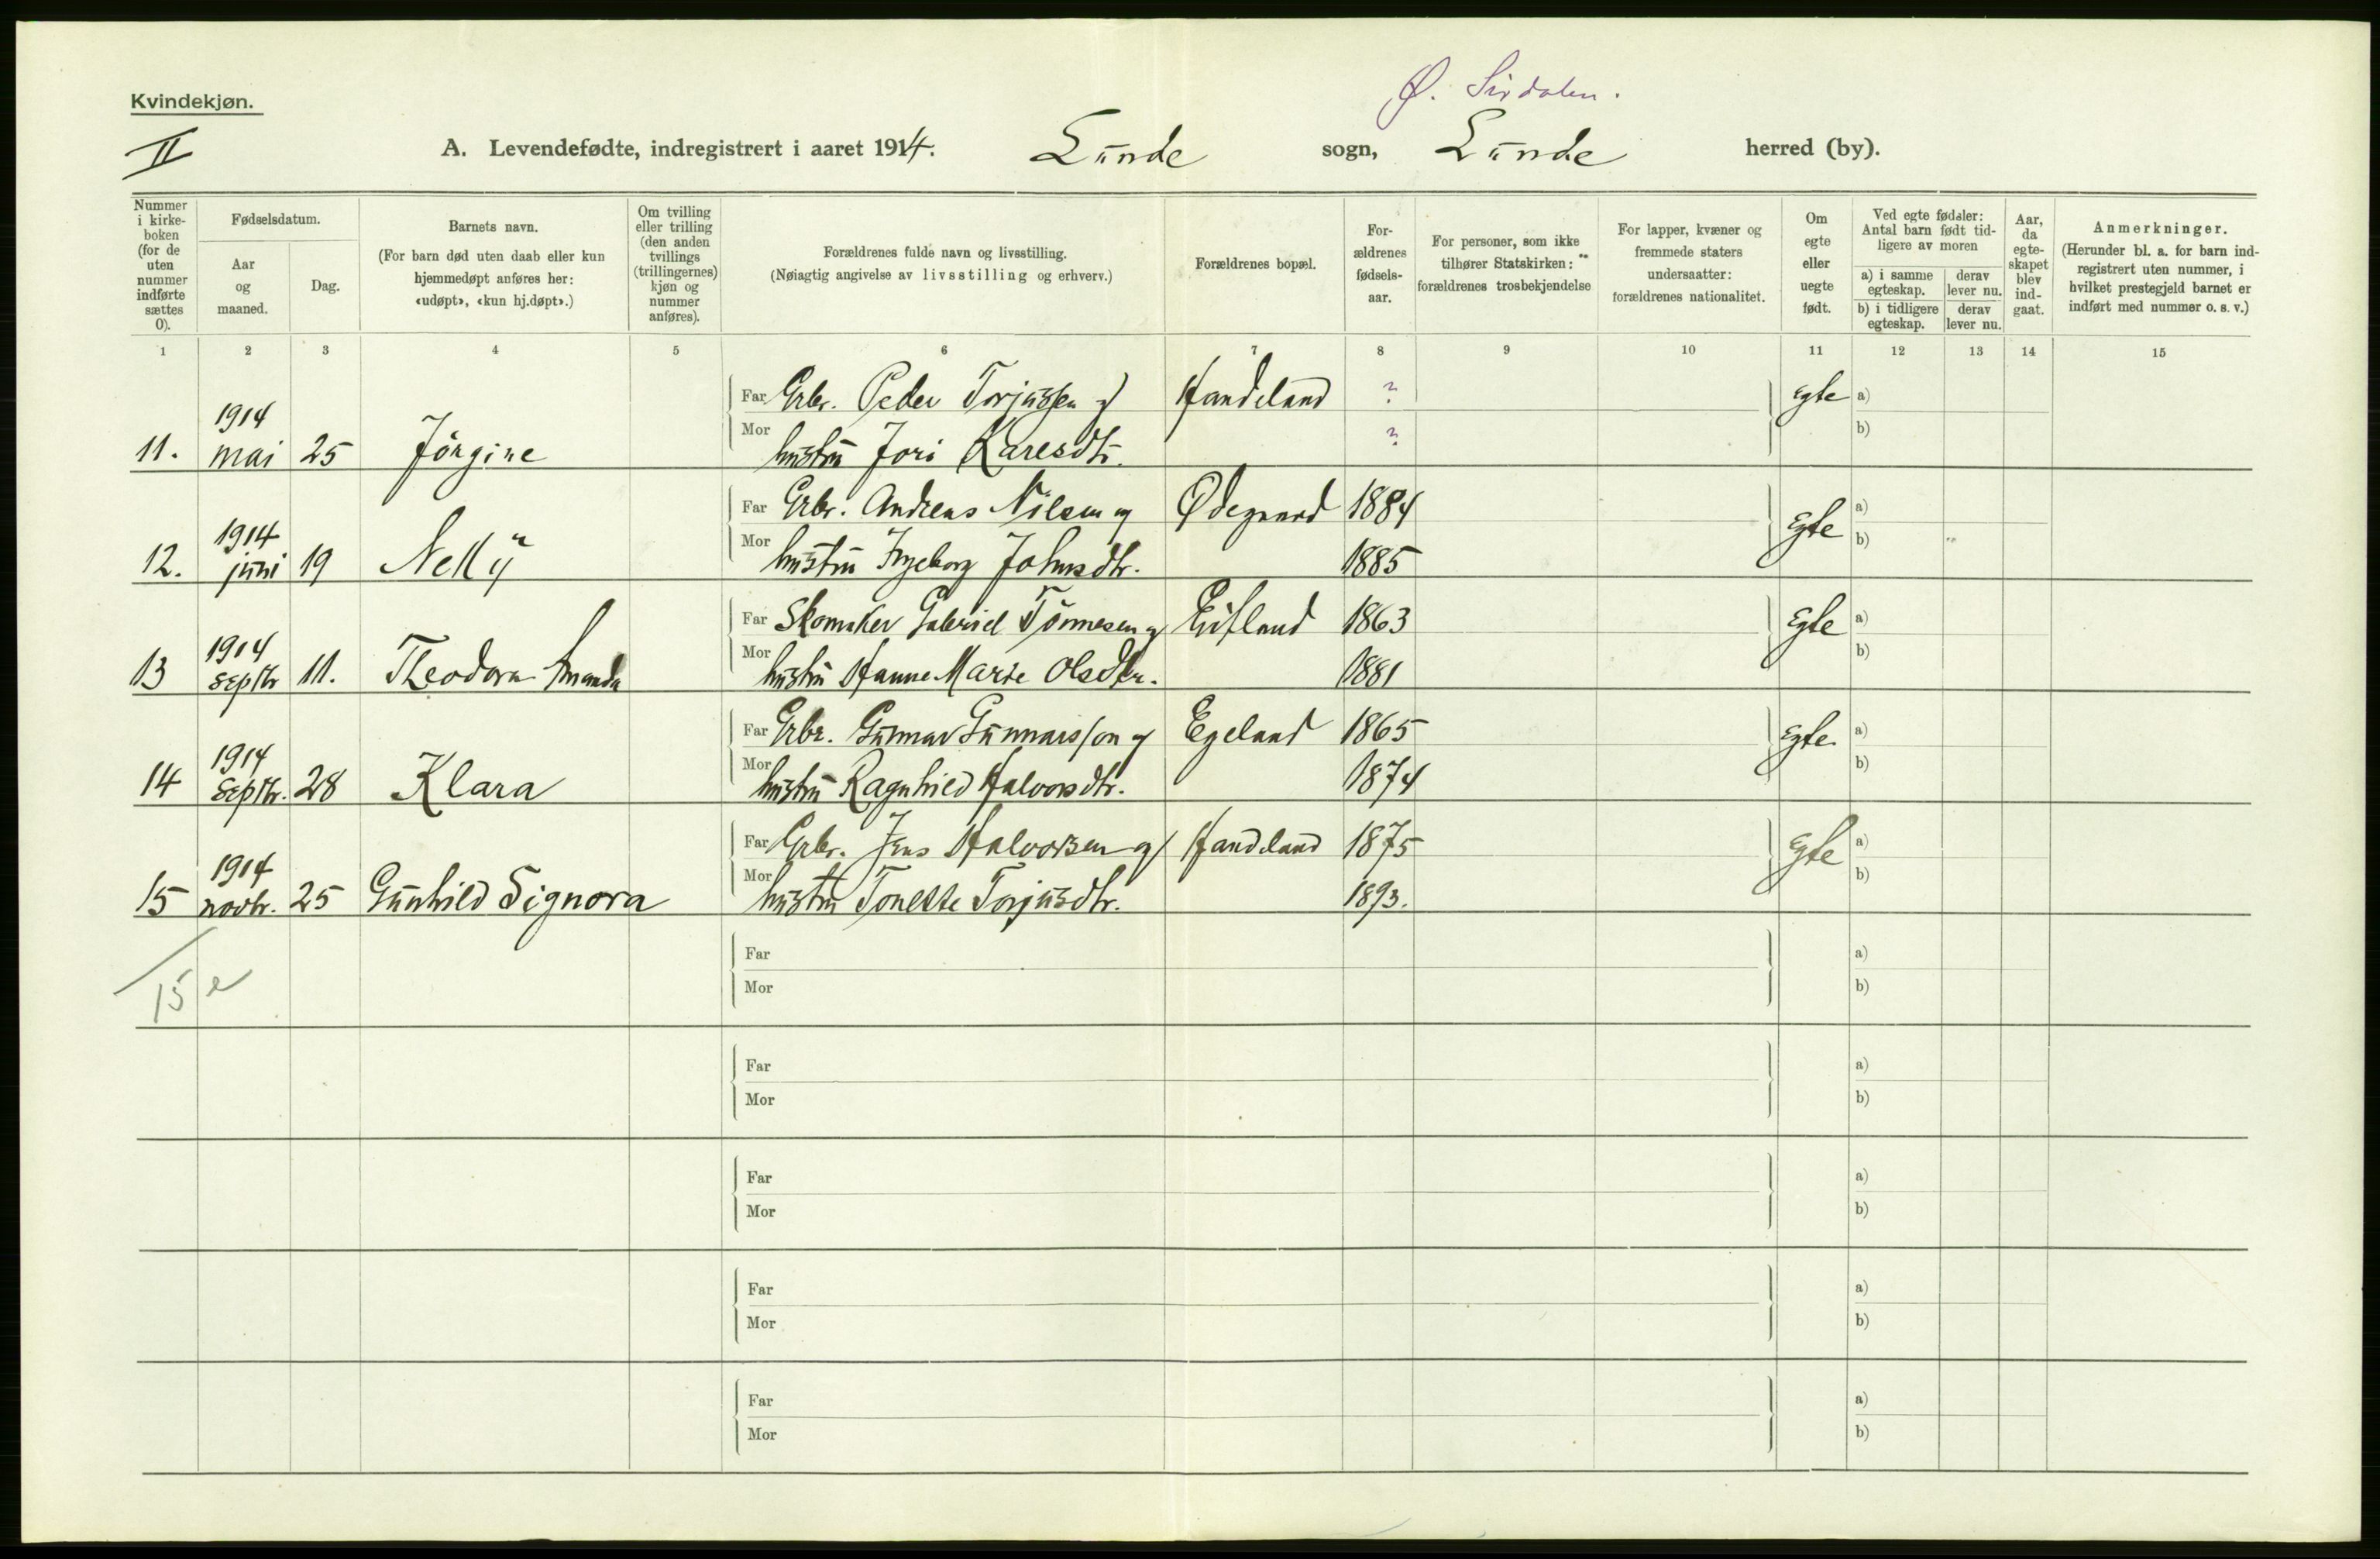 Kvindekjøn.
Ø. Sirdalen.
II
A. Levendefødte, indregistrert i aaret 1914. Lunde sogn, Lunde herred (by).
Nummer i kirke-boken (for de uten nummer indførte sættes 0).
Fødselsdatum.
Aar og maaned.
Dag.
Barnets navn.
(For barn død uten daab eller kun hjemmedøpt anføres her: «udøpt», «kun hj.døpt».)
Om tvilling eller trilling (den anden tvillings (trillingernes) kjøn og nummer anføres).
Forældrenes fulde navn og livsstilling.
(Nøiagtig angivelse av livsstilling og erhverv.)
Forældrenes bopæl.
For-ældrenes fødsels-aar.
For personer, som ikke tilhører Statskirken: forældrenes trosbekjendelse
For lapper, kvæner og fremmede staters undersaatter: forældrenes nationalitet.
Om egte eller uegte født.
Ved egte fødsler: Antal barn født tid-ligere av moren
a) i samme egteskap.
derav lever nu.
b) i tidligere egteskap.
derav lever nu.
Aar, da egte-skapet blev ind-gaat.
Anmerkninger.
(Herunder bl. a. for barn ind-registrert uten nummer, i hvilket prestegjeld barnet er indført med nummer o. s. v.)
1 2 3 4 5 6 7 8 9 10 11 12 13 14 15
Far Grbr. Peder Torjussen og Handeland ? Egte a)
11. 1914 mai 25 Jörgine
Mor hustru Jori Karesdtr. ? b)
Far Grbr. Andreas Nilsen og Ødegaard 1884 Egte a)
12. 1914 juni 19 Nelly
Mor hustru Ingeborg Johnsdtr. 1885 b)
Far Skomaker Gabriel Tönnesen og Eifland 1863 Egte a)
13 1914 septbr 11. Theodora Amanda
Mor hustru Hanne Marie Olsdtr. 1881 b)
Far Grbr. Gunnar Gunnarsson og Egeland 1865 Egte. a)
14 1914 septbr. 28 Klara
Mor hustru Ragnhild Halvorsdtr. 1874 b)
Far Grbr. Jens Halvorsen og Handeland 1875 Egte a)
15 1914 novbr. 25 Gunhild Signora
Mor hustru Tonette Torjusdtr. 1893. b)
15 e
Far a)
Mor b)
Far a)
Mor b)
Far a)
Mor b)
Far a)
Mor b)
Far a)
Mor b)